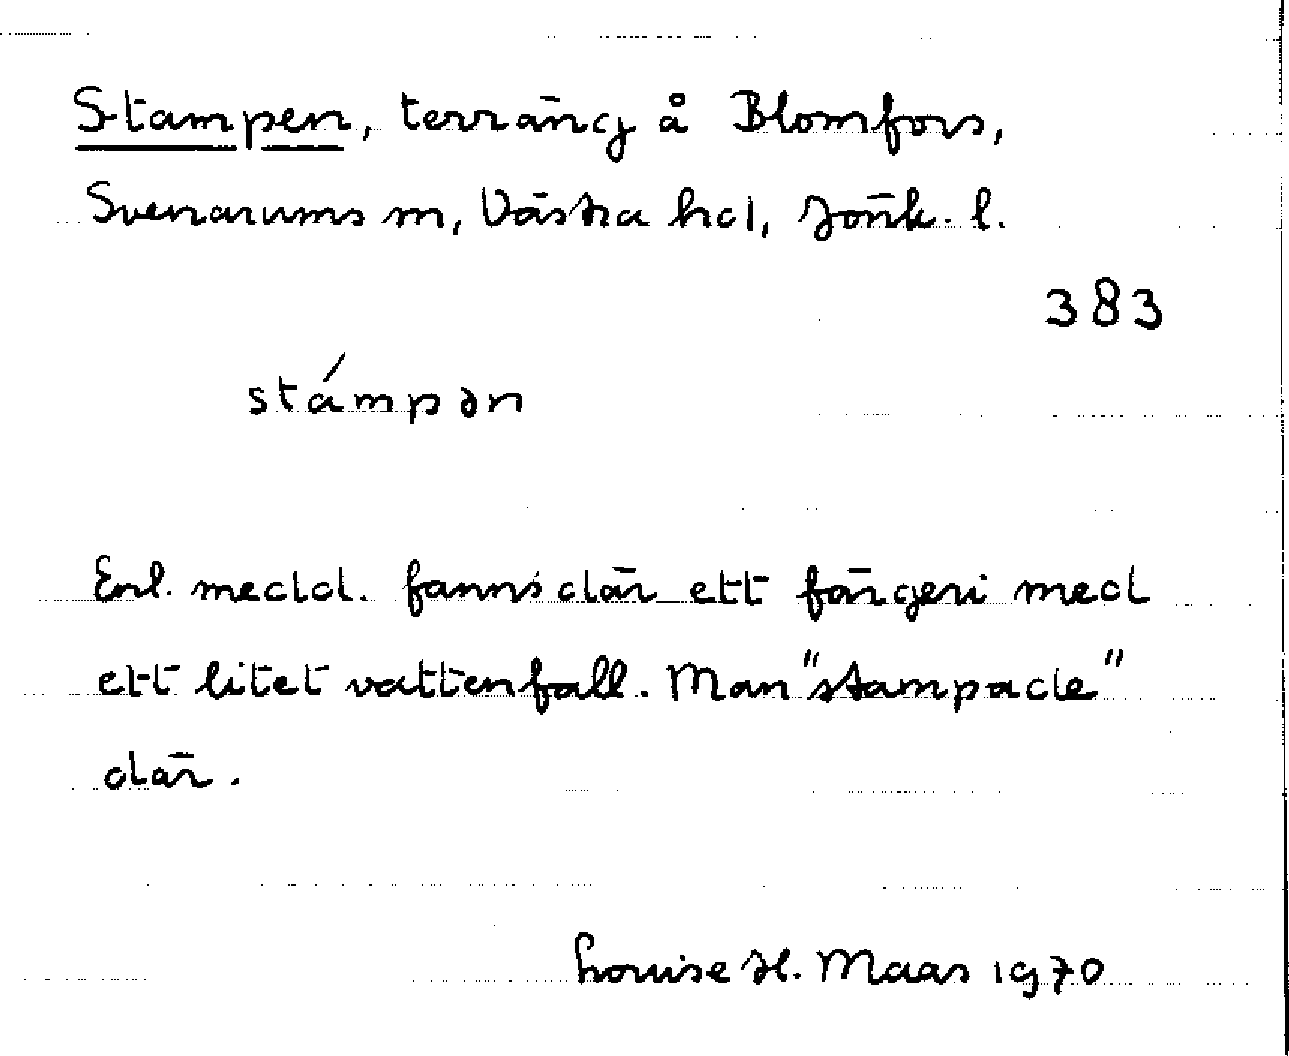 Stampen, terräng å Blomfors,
Svenarums sn, Västra hd, Jönk. l.
383
stámpən
Enl. medd. fanns där ett färgeri med
ett litet vattenfall. Man "stampade"
där.
Louise H. Maas 1970